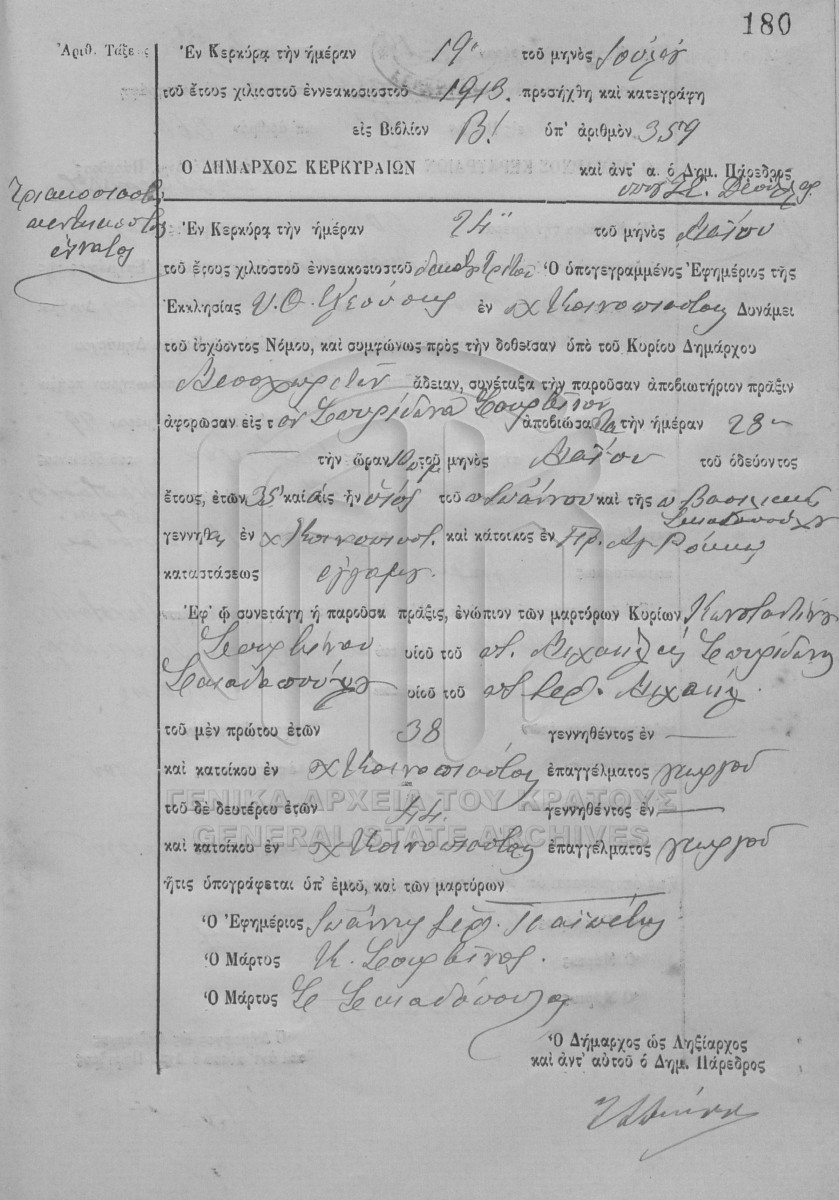 180
Ἀριθ. Τάξεως
Ἐν Κερκύρᾳ τὴν ἡμέραν 19 τοῦ μηνὸς Ἰουλίου
τοῦ ἔτους χιλιοστοῦ ἐννεακοσιοστοῦ 1913. προσήχθη καὶ κατεγράφη
εἰς Βιβλίον Β! ὑπ' ἀριθμὸν 359
Ο ΔΗΜΑΡΧΟΣ ΚΕΡΚΥΡΑΙΩΝ καὶ ἀντ' α. ὁ Δημ. Πάρεδρος
Τριακοσιοστὸς
πεντηκοστὸς
ἔννατος
Ἐν Κερκύρᾳ τὴν ἡμέραν 24 τοῦ μηνὸς Μαΐου
τοῦ ἔτους χιλιοστοῦ ἐννεακοσιοστοῦ δεκάτου τρίτου Ὁ ὑπογεγραμμένος Ἐφημέριος τῆς
Ἐκκλησίας Υ. Θ. ἐν χ Κοινοπιαστῶν Δυνάμει
τοῦ ἰσχύοντος Νόμου, καὶ συμφώνως πρὸς τὴν δοθεῖσαν ὑπὸ τοῦ Κυρίου Δημάρχου
Μεσοχωριτῶν ἄδειαν, συνέταξα τὴν παροῦσαν ἀποβιωτήριον πρᾶξιν
ἀφορῶσαν εἰς τὸν Σπυρίδωνα Σουρβῖνον ἀποβιώσα τὴν ἡμέραν 23
τὴν ὥραν 10 τοῦ μηνὸς Μαΐου τοῦ ὁδεύοντος
ἔτους, ἐτῶν 35 καὶ εἰς ἣν υἱὸς τοῦ π Ἰωάννου καὶ τῆς π Βασιλικῆς
Σκιαδοπούλου
γεννηθ ἐν χ Κοινοπιαστ. καὶ κάτοικος ἐν Πρ. Αγ Ρόκκου
καταστάσεως ἔγγαμος.
Ἐφ' ᾧ συνετάγη ἡ παροῦσα πρᾶξις, ἐνώπιον τῶν μαρτύρων Κυρίων Κωνσταντίνου
Σουρβίνου υἱοῦ τοῦ π. Μιχαὴλ καὶ Σπυρίδωνος
Σκιαδοπούλου υἱοῦ τοῦ π Ιερ. Μιχαήλ.
τοῦ μὲν πρώτου ἐτῶν 38 γεννηθέντος ἐν
καὶ κατοίκου ἐν χ Κοινοπιαστῶν ἐπαγγέλματος γεωργοῦ
ΓΕΝΙΚΑ ΑΡΧΕΙΑ ΤΟΥ ΚΡΑΤΟΥΣ
τοῦ δὲ δευτέρου ἐτῶν 44. γεννηθέντος ἐν
GENERAL STATE ARCHIVES
καὶ κατοίκου ἐν χ Κοινοπιαστῶν ἐπαγγέλματος γεωργοῦ
ἥτις ὑπογράφεται ὑπ' ἐμοῦ, καὶ τῶν μαρτύρων
Ὁ Ἐφημέριος Ἰωάννης Ιερ. Παϊπέτης
Ὁ Μάρτυς Κ. Σουρβῖνος.
Ὁ Μάρτυς Σ Σκιαδόπουλος
Ὁ Δήμαρχος ὡς Ληξίαρχος
καὶ ἀντ' αὐτοῦ ὁ Δημ. Πάρεδρος